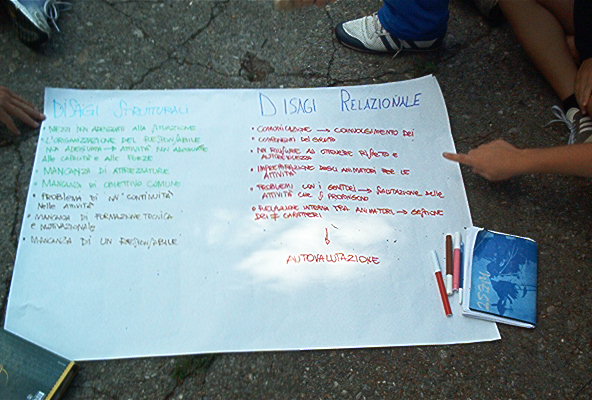 DISAGI STRUTTURALI
• MEZZI NON ADEGUATI ALLA SITUAZIONE
• L'ORGANIZZAZIONE DEL RESPONSABILE
NON ADEGUATA → ATTIVITÀ NON ADEGUATE
ALLE CAPACITÀ E ALLE FORZE
• MANCANZA DI ATTREZZATURE
• MANCANZA DI OBIETTIVO COMUNE
• PROBLEMA DI CONTINUITÀ
NELLE ATTIVITÀ
• MANCANZA DI FORMAZIONE TECNICA
E MOTIVAZIONALE
• MANCANZA DI UN RESPONSABILE
DISAGI RELAZIONALE
• COMUNICAZIONE → COINVOLGIMENTO DEI
COMPONENTI DEL GRUPPO
• NON RIUSCIRE AD OTTENERE RISPETTO E
AUTOREVOLEZZA
• IMPREPARAZIONE DEGLI ANIMATORI PER LE
ATTIVITÀ
• PROBLEMI CON I GENITORI → VALUTAZIONE DELLE
ATTIVITÀ CHE SI PROPONGONO
• RELAZIONE INTERNA TRA ANIMATORI → GESTIONE
DEI CARATTERI
↓
AUTOVALUTAZIONE
WEST